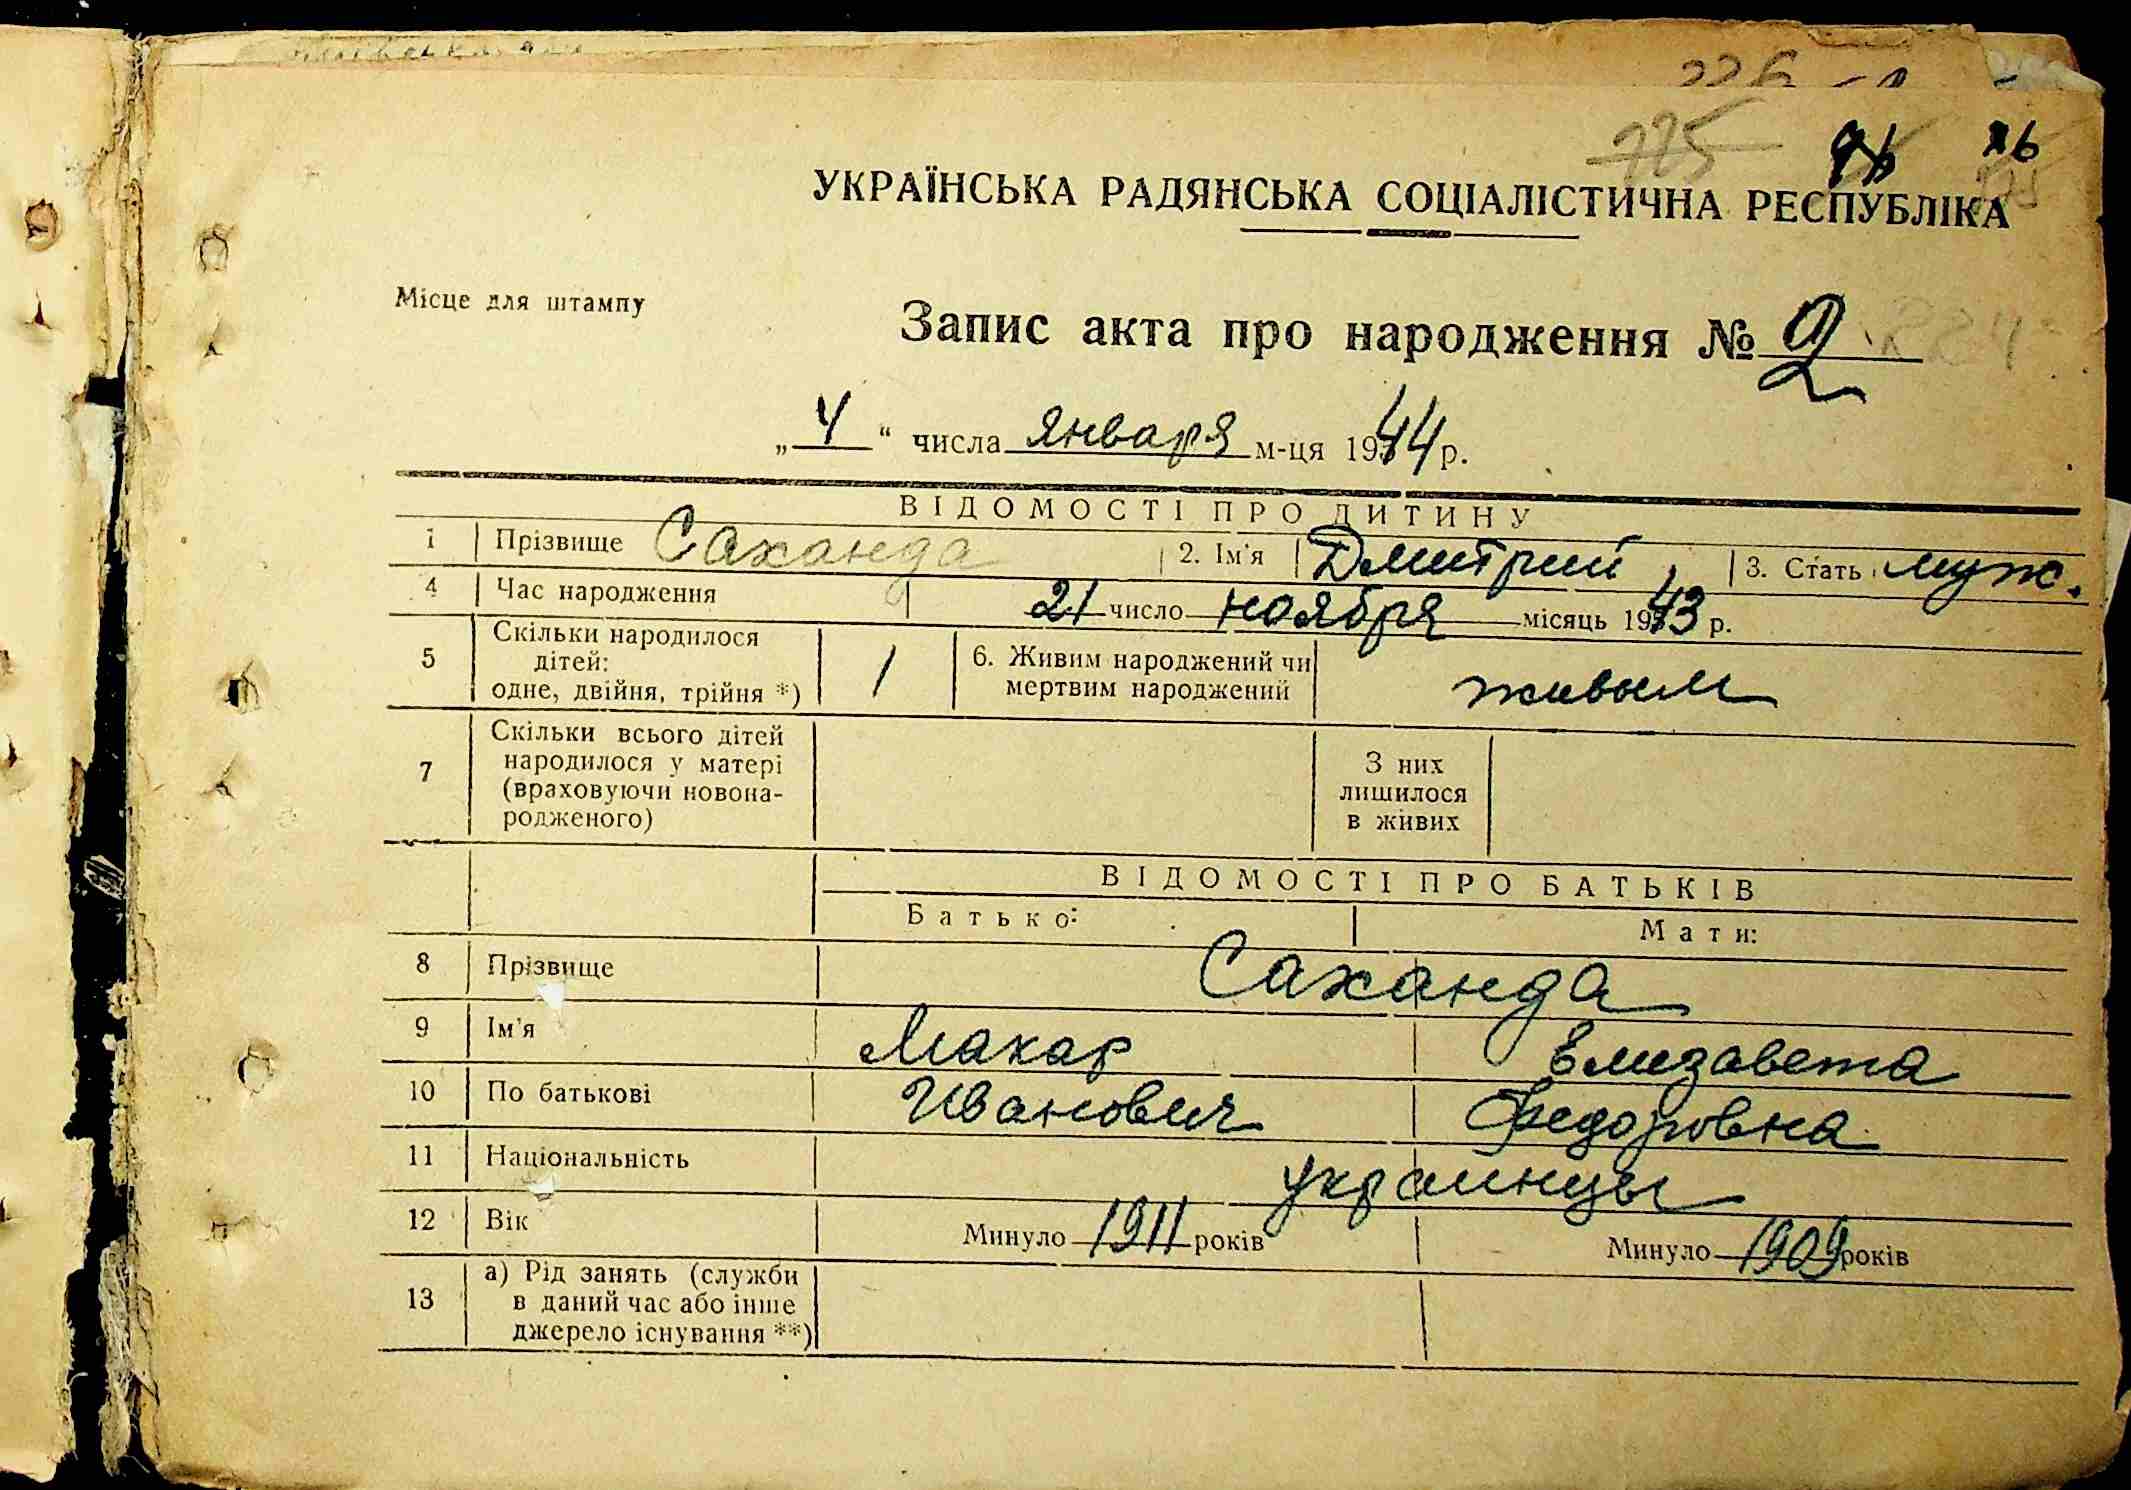 775 26
УКРАЇНСЬКА РАДЯНСЬКА СОЦІАЛІСТИЧНА РЕСПУБЛІКА
Місце для штампу
Запис акта про народження № 2
„ 4 “ числа января м-ця 1944 р.
ВІДОМОСТІ ПРО ДИТИНУ
1 Прізвище Саханда 2. Ім'я Дмитрий 3. Стать муж.
4 Час народження 21 число ноября місяць 1943 р.
5 Скільки народилося дітей: одне, двійня, трійня *) 1 6. Живим народжений чи мертвим народжений живым
7 Скільки всього дітей народилося у матері (враховуючи новона-родженого) З них лишилося в живих
ВІДОМОСТІ ПРО БАТЬКІВ
Батько: Мати:
8 Прізвище Саханда
9 Ім'я Макар Елизавета
10 По батькові Иванович Федоровна
11 Національність украинцы
12 Вік Минуло 1911 років Минуло 1909 років
13 а) Рід занять (служби в даний час або інше джерело існування **)